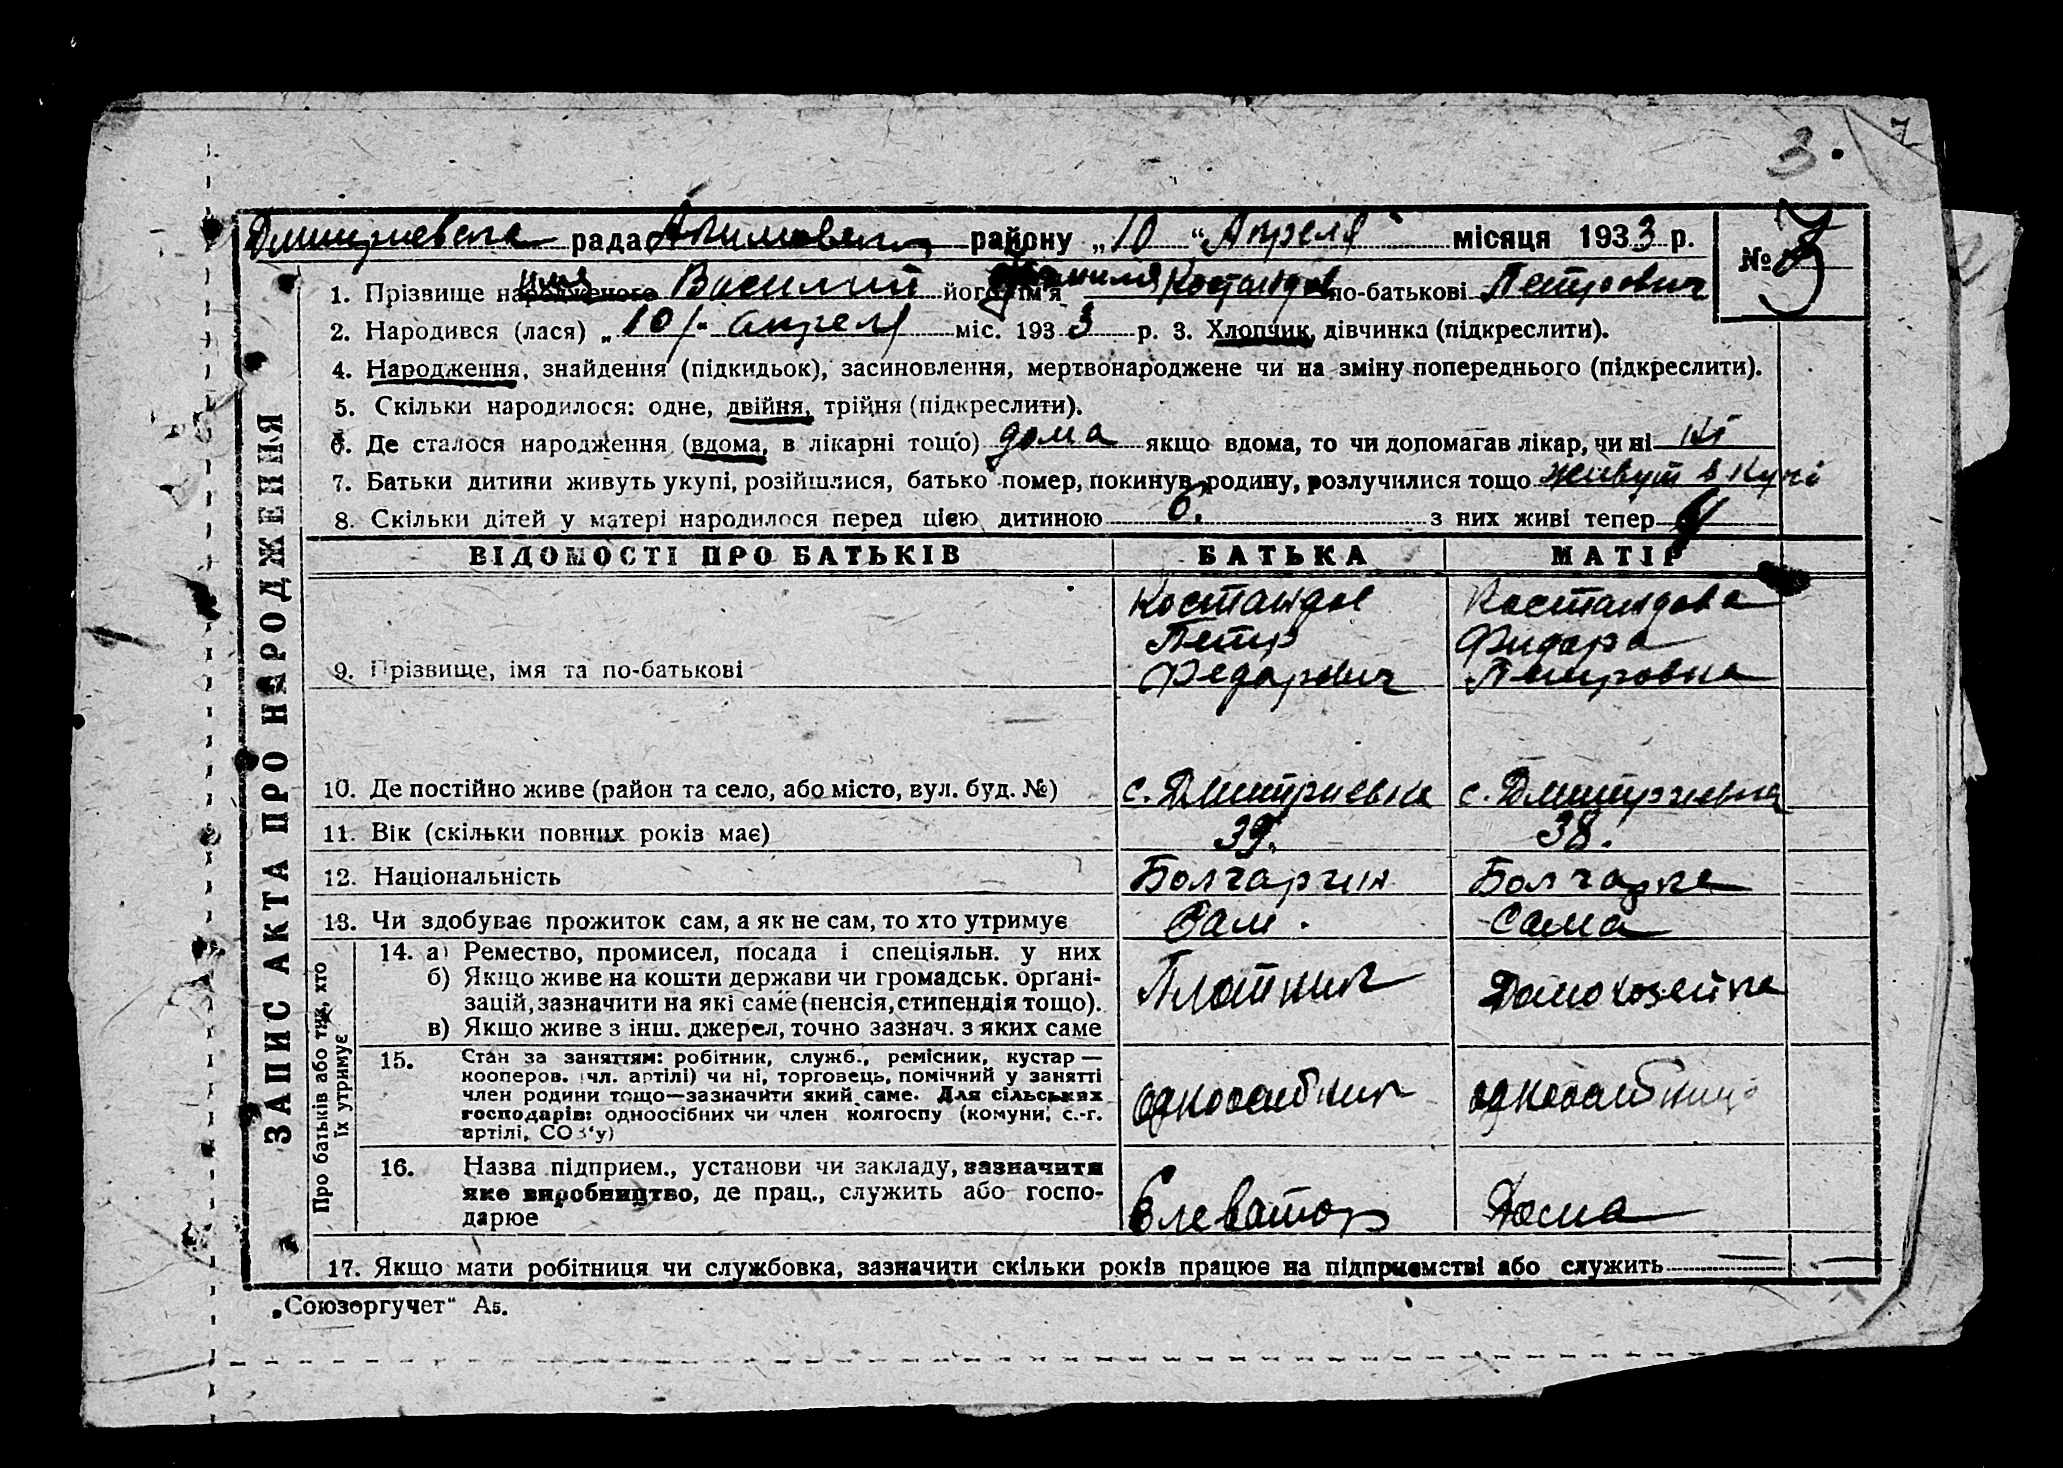 3.
Дмитриевка рада Акимовского району „10“ Апреля місяця 1933 р.
№ 3
1. Прізвище народженого имя Василий його ім'я фамилия Костандов по-батькові Петрович
2. Народився (лася) „10/. апреля міс. 1933 р. 3. Хлопчик, дівчинка (підкреслити).
4. Народження, знайдення (підкидьок), засиновлення, мертвонароджене чи на зміну попереднього (підкреслити).
5. Скільки народилося: одне, двійня, трійня (підкреслити).
6. Де сталося народження (вдома, в лікарні тощо) дома якщо вдома, то чи допомагав лікар, чи ні ні
7. Батьки дитини живуть укупі, розійшлися, батько помер, покинув родину, розлучилися тощо живут в купі
8. Скільки дітей у матері народилося перед цією дитиною 6. з них живі тепер 4
ВІДОМОСТІ ПРО БАТЬКІВ БАТЬКА МАТІР
Костандов Костандова
Петр Фидора
9. Прізвище, імя та по-батькові Федарович Петровна
10. Де постійно живе (район та село, або місто, вул. буд. №) с. Дмитриевка с. Дмитриевка
11. Вік (скільки повних років має) 39. 38.
12. Національність Болгарин Болгарка
13. Чи здобуває прожиток сам, а як не сам, то хто утримує Сам. Сама
14. а) Ремество, промисел, посада і спеціяльн. у них
б) Якщо живе на кошти держави чи громадськ. органі-
зацій, зазначити на які саме (пенсія, стипендія тощо). Плотник Домохозейка
в) Якщо живе з інш. джерел, точно зазнач. з яких саме
15. Стан за заняттям: робітник, служб., ремісник, кустар —
кооперов. (чл. артілі) чи ні, торговець, помічний у занятті
член родини тощо—зазначити який саме. Для сільських
господарів: одноосібних чи член колгоспу (комуни, с.-г. односабник
артілі, СОЗ'у)
16. Назва підприєм., установи чи закладу, зазначити
яке виробництво, де прац., служить або госпо-
дарює Елеватор Дома
17. Якщо мати робітниця чи службовка, зазначити скільки років працює на підприємстві або служить
„Союзоргучет“ А5.
ЗАПИС АКТА ПРО НАРОДЖЕННЯ
Про батьків або тих, хто
їх утримує